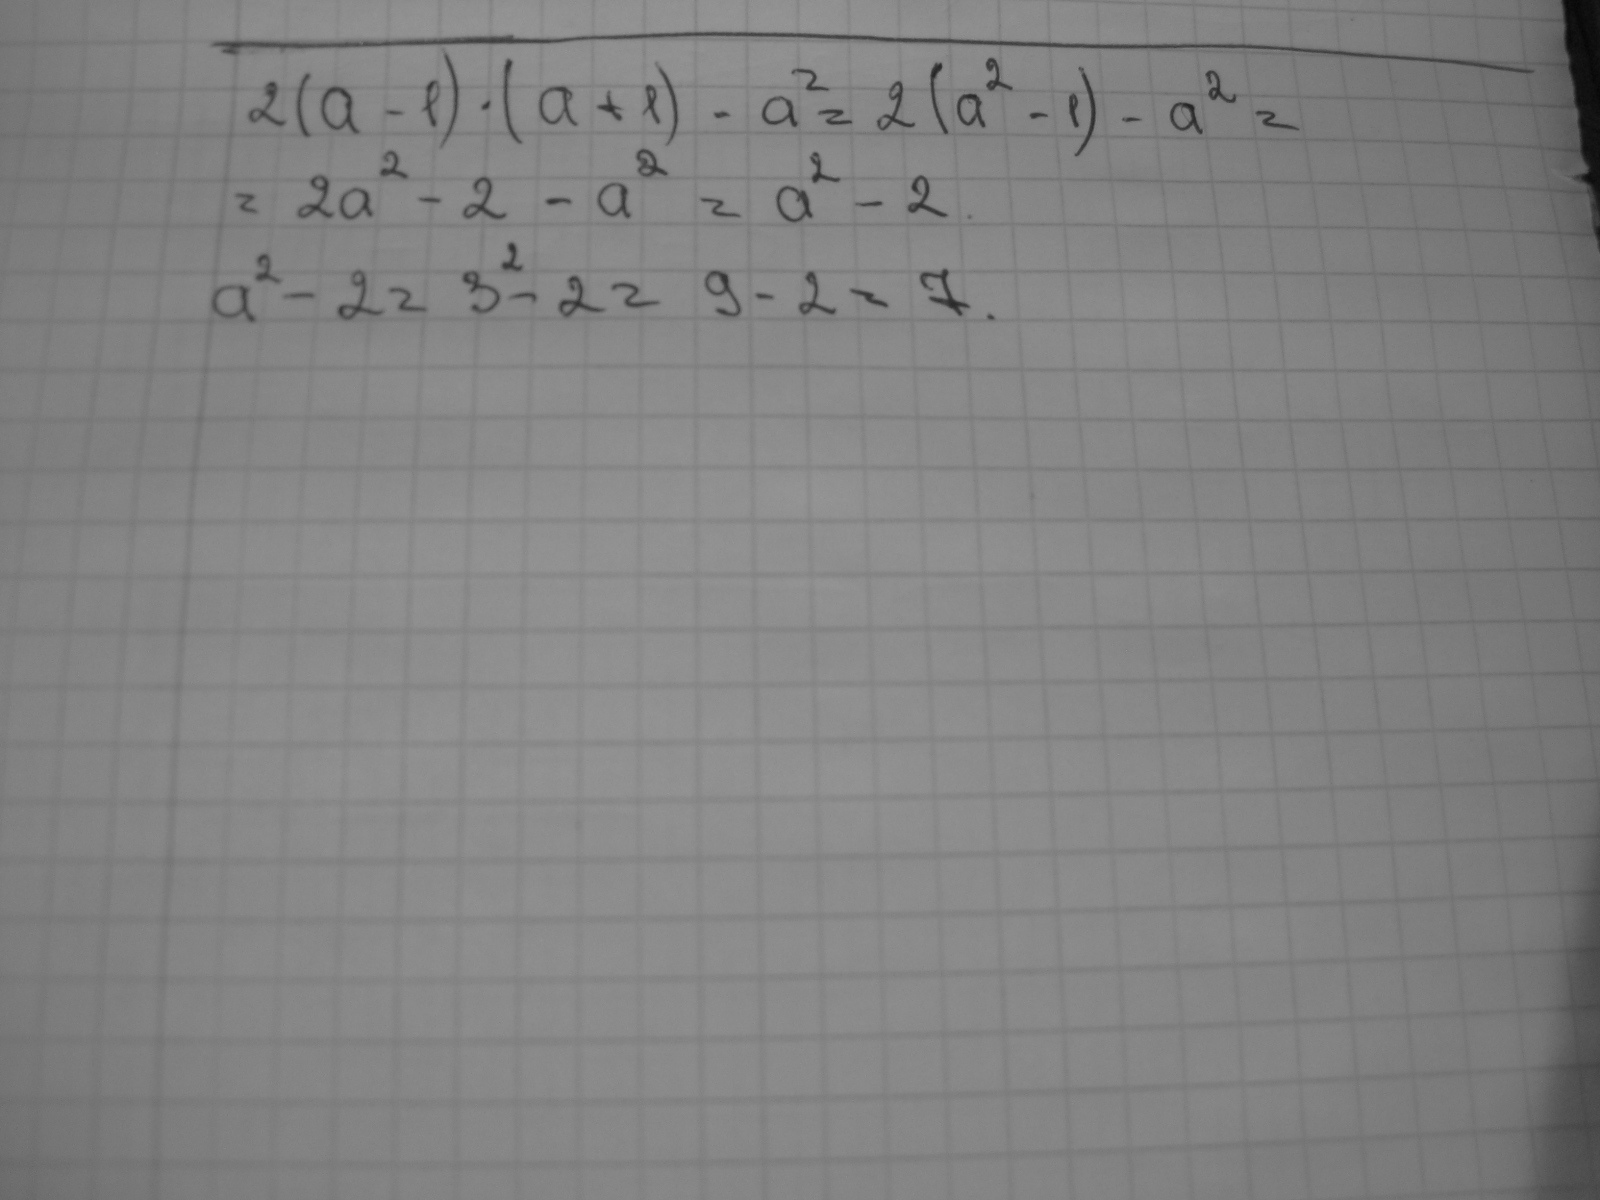 2(a - 1)·(a + 1) - a² = 2(a² - 1) - a² =
= 2a² - 2 - a² = a² - 2.
a² - 2 = 3² - 2 = 9 - 2 = 7.